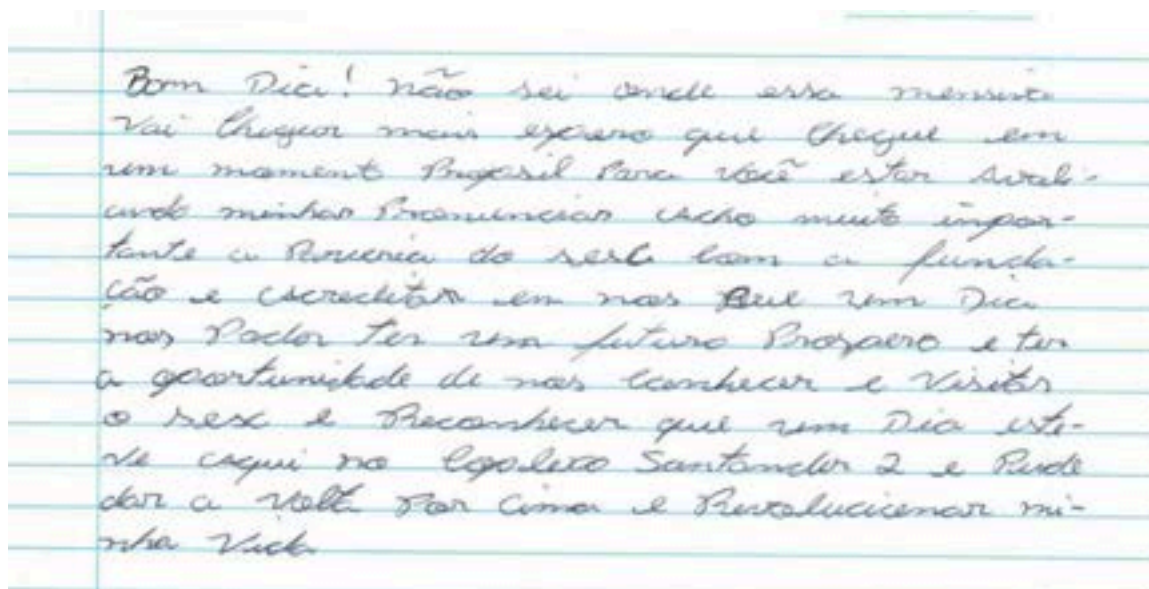 Bom Dia! não sei onde essa
Vai Chegar mais espero que Chegue em
um momento Para você estar avali-
ando minhas Pronuncias acho muito impor-
tante a do sesc com a funda-
ção e acreditar em nos Que um Dia
nos Poder Ter um futuro Prospero e ter
a oportunidade de nos conhecer e Visitar
o sesc e Reconhecer que um Dia este-
ve aqui no Santander 2 e Pude
dar a volta Por Cima e Revolucionar mi-
nha Vida